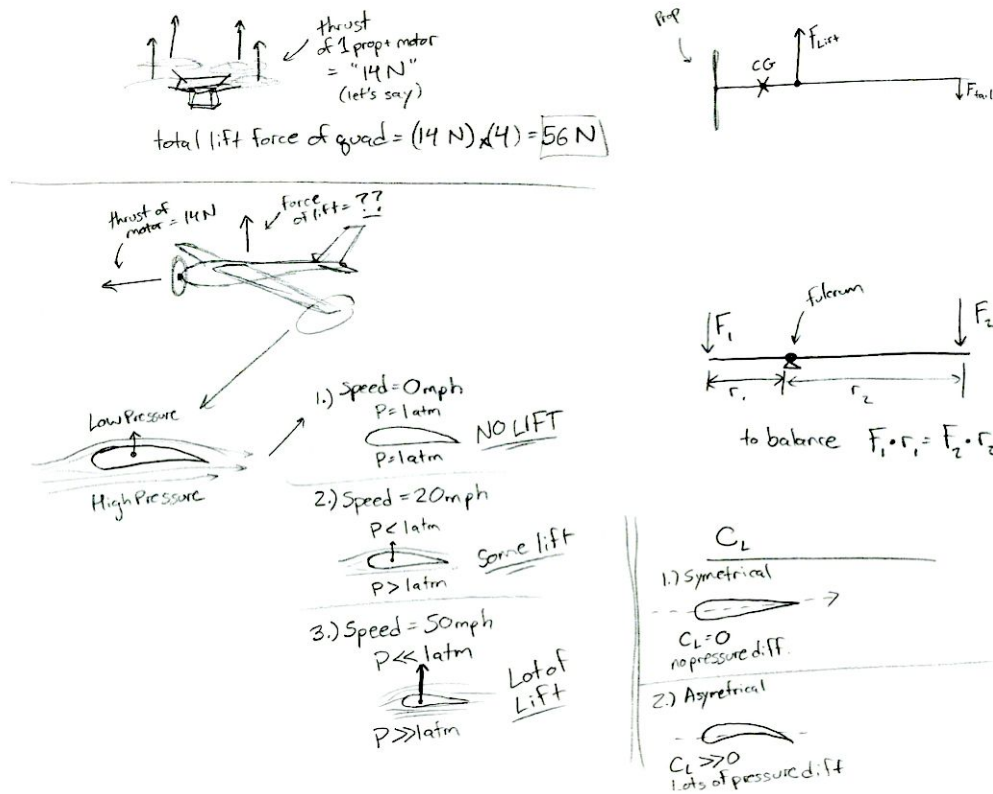 thrust
of 1 prop + motor
= "14 N"
(let's say)
total lift force of quad = (14 N) x (4) = 56 N
Prop
CG
F_Lift
F_tail
thrust of
motor = 14 N
force
of lift = ??
Low Pressure
High Pressure
1.) Speed = 0mph
P = 1 atm
NO LIFT
P = 1 atm
2.) Speed = 20mph
P < 1 atm
Some lift
P > 1 atm
3.) Speed = 50mph
P << 1 atm
Lot of
Lift
P >> 1 atm
fulcrum
F₁
F₂
r₁
r₂
to balance F₁ • r₁ = F₂ • r₂
C_L
1.) Symetrical
C_L = 0
no pressure diff.
2.) Asymetrical
C_L >> 0
Lots of pressure diff